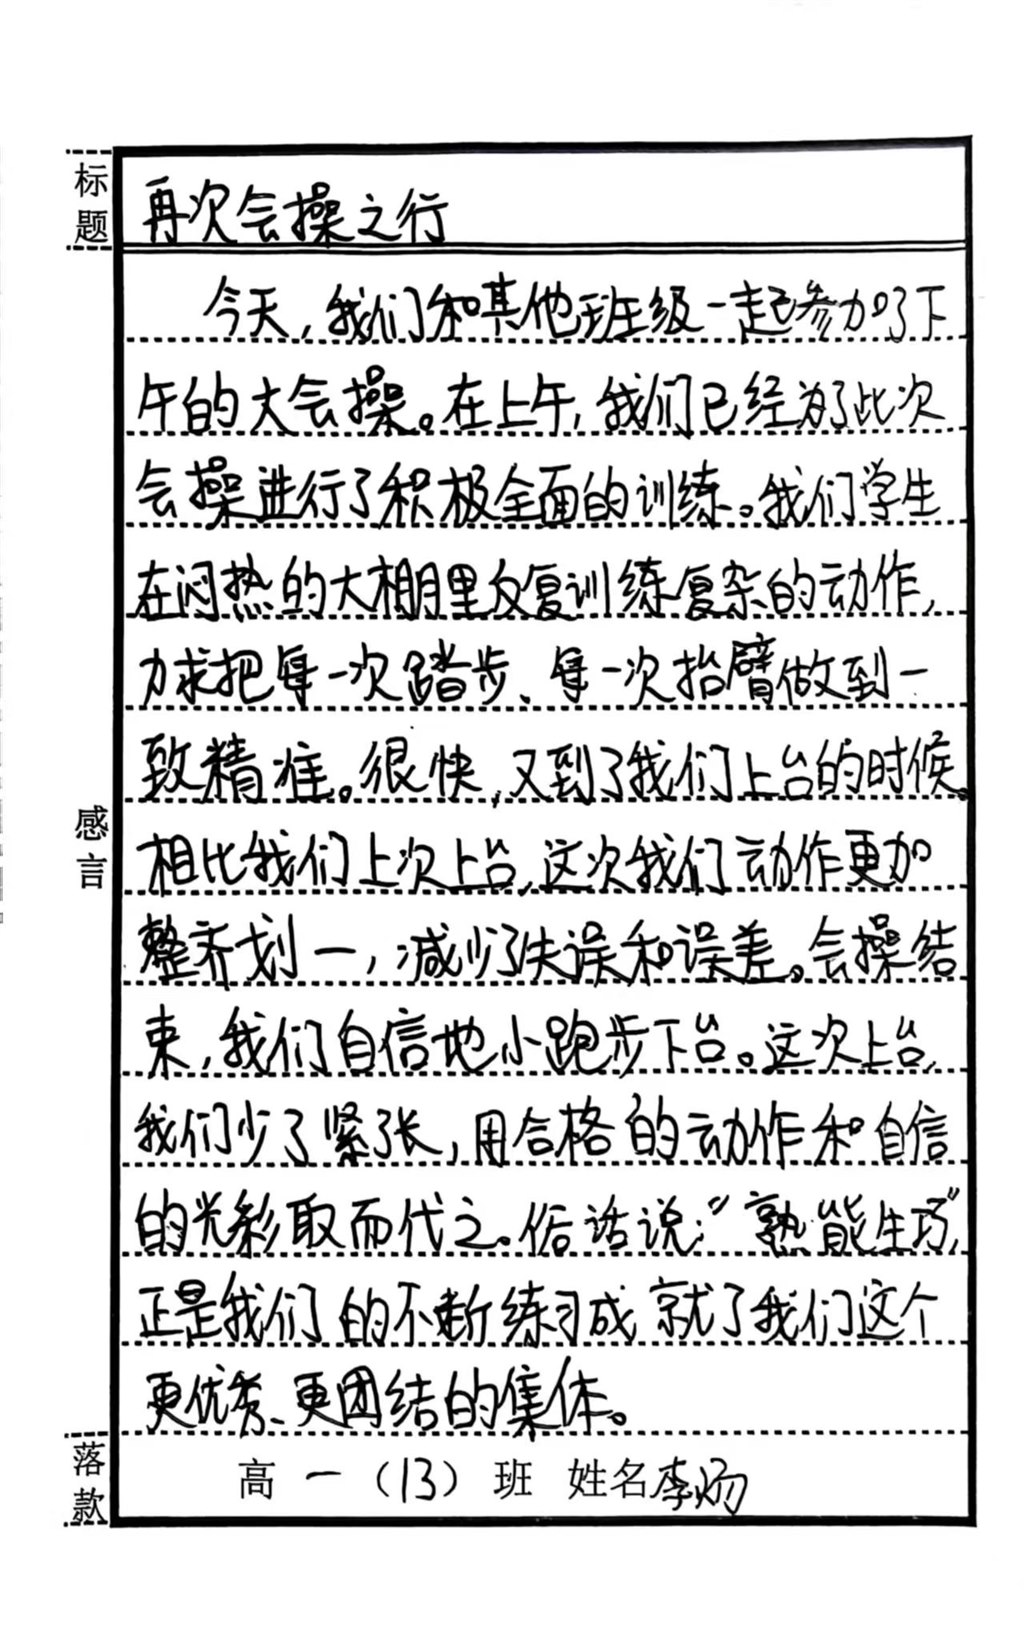 标题
再次会操之行
今天,我们和其他班级一起参加了下
午的大会操。在上午,我们已经为了此次
会操进行了积极全面的训练。我们学生
在闷热的大棚里反复训练复杂的动作,
力求把每一次踏步、每一次抬臂做到一
致精准。很快,又到了我们上台的时候。
相比我们上次上台,这次我们动作更加
整齐划一,减少了失误和误差。会操结
束,我们自信地小跑步下台。这次上台,
我们少了紧张,用合格的动作和自信
的光彩取而代之。俗话说:“熟能生巧”,
正是我们的不断练习成就了我们这个
更优秀、更团结的集体。
感言
落款
高一(13)班 姓名李炀